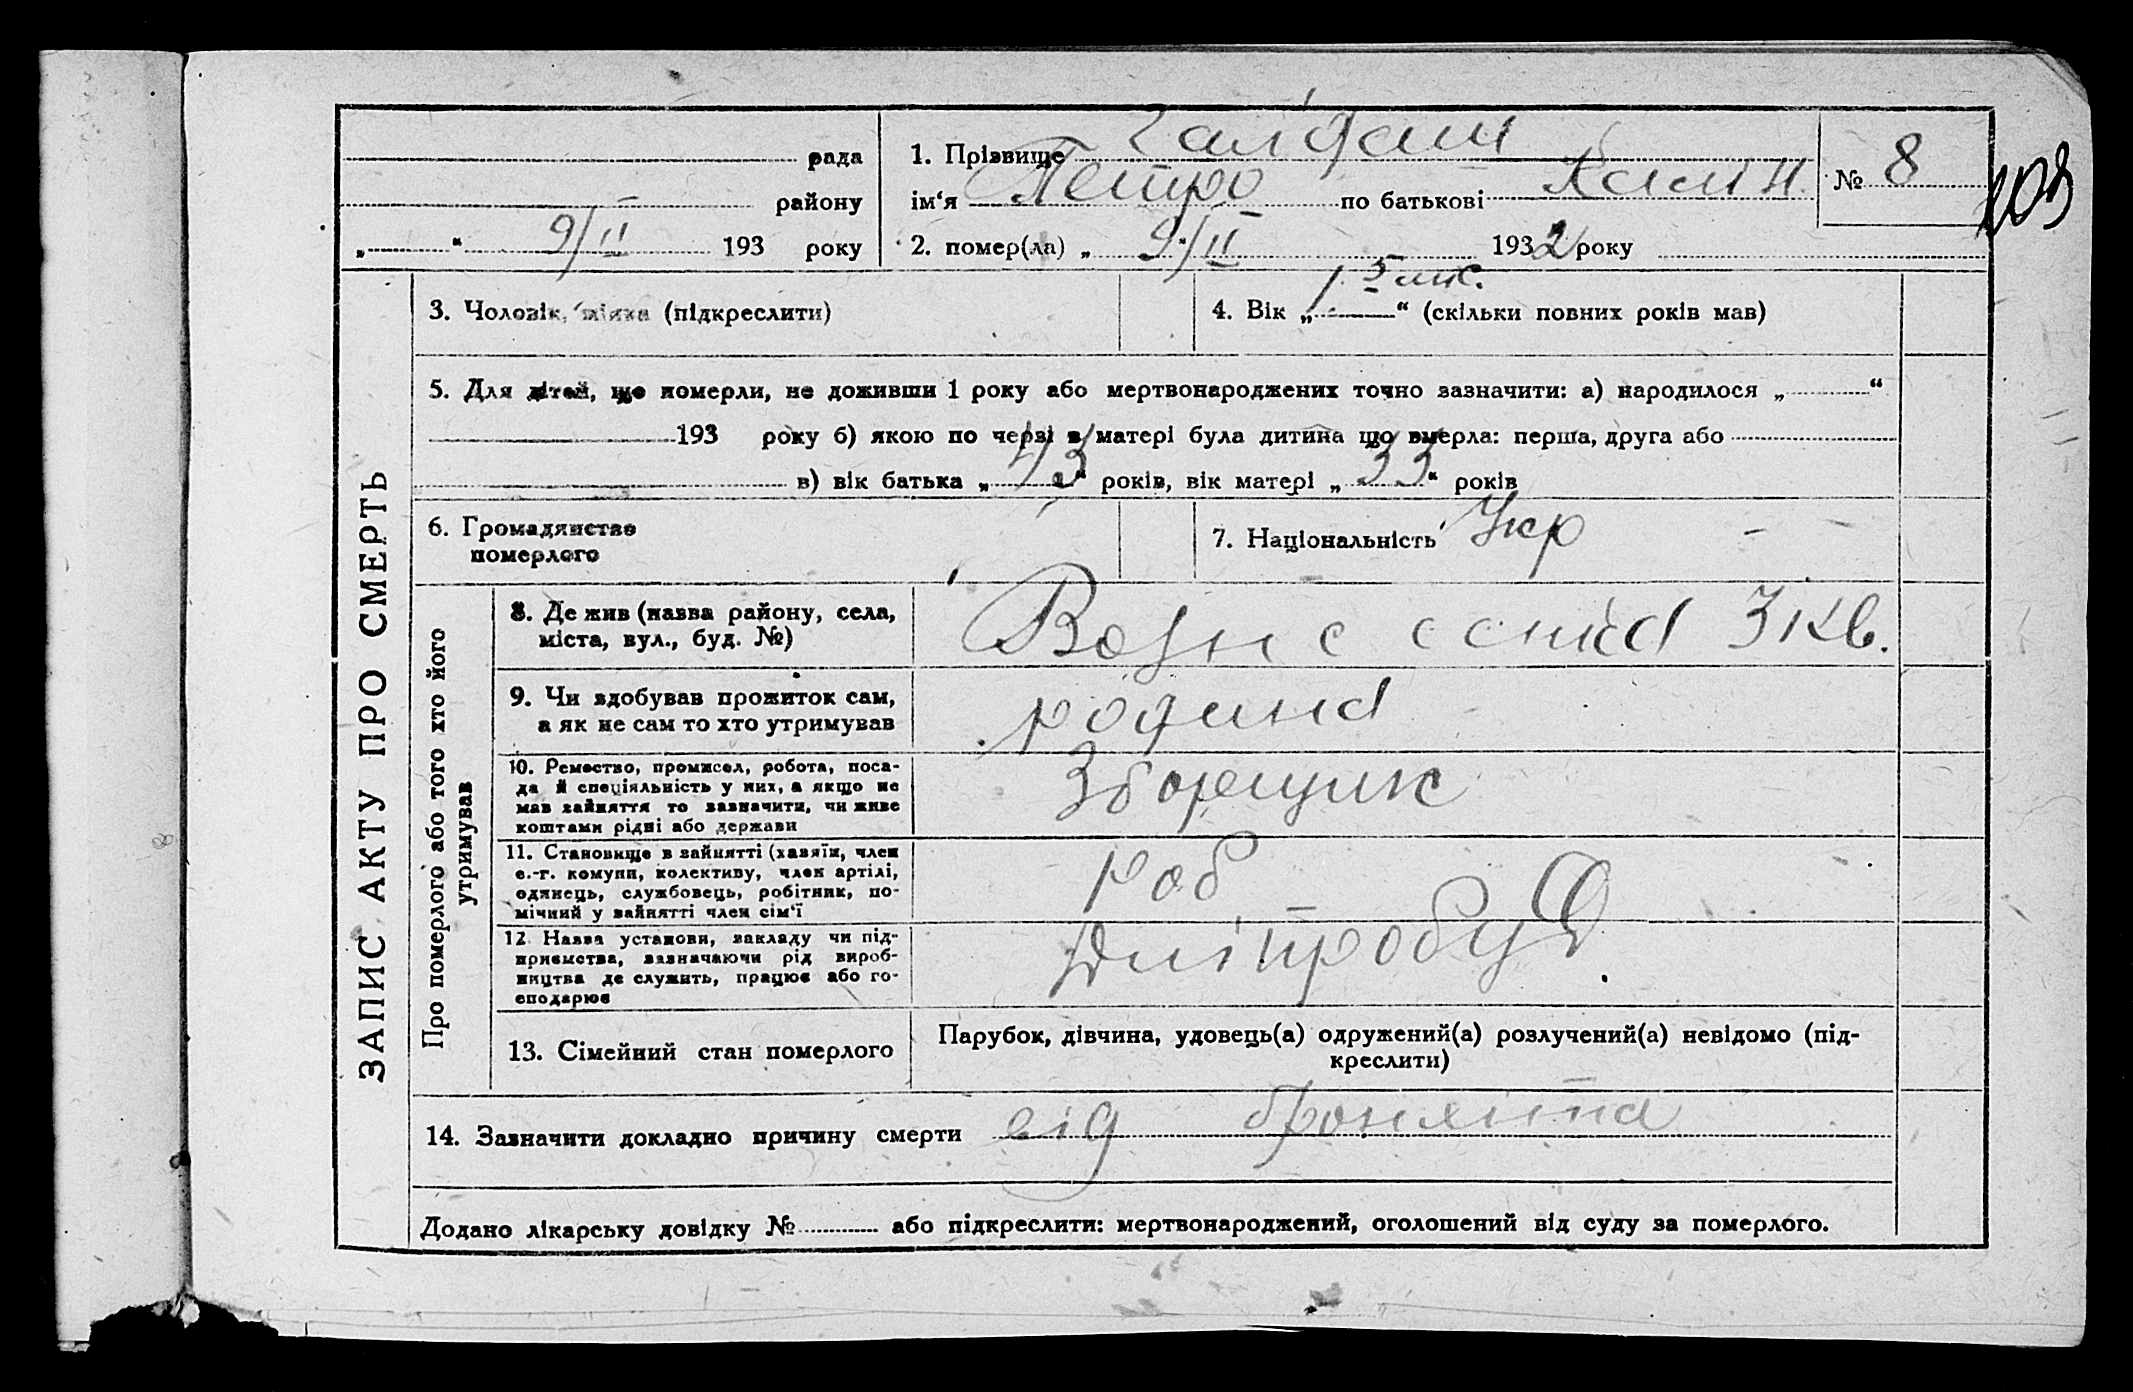 рада
району
„ “ 9/II 193 року
1. Прізвище
ім‘я Петро по батькові Калін
2. помер(ла) „ 9/II 1932 року
№ 8
103
ЗАПИС АКТУ ПРО СМЕРТЬ
3. Чоловік, жінка (підкреслити)
4. Вік „ 1 5 міс. “ (скільки повних років мав)
5. Для дітей, що померли, не доживши 1 року або мертвонароджених точно зазначити: а) народилося „ “
193 року б) якою по черзі в матері була дитина що вмерла: перша, друга або
в) вік батька „ 43 “ років, вік матері „ 33 “ років
6. Громадянство
померлого
7. Національність Укр
Про померлого або того хто його
утримував
8. Де жив (назва району, села,
міста, вул., буд. №)
Возн с 3 кв.
9. Чи здобував прожиток сам,
а як не сам то хто утримував
родина
10. Ремество, промисел, робота, поса-
да й спеціяльність у них, а якщо не
мав зайняття то зазначити, чи живе
коштами рідні або держави
Зборщик
11. Становище в зайнятті (хазяїн, член
с.-г. комуни, колективу, член артілі,
одинець, службовець, робітник, по-
мічний у зайнятті член сім‘ї
роб
12. Назва установи, закладу чи під-
приємства, зазначаючи рід вироб-
ництва де служить, працює або го-
сподарює
Дніпробуд.
13. Сімейний стан померлого
Парубок, дівчина, удовець(а) одружений(а) розлучений(а) невідомо (під-
креслити)
14. Зазначити докладно причину смерти від бронхіта
Додано лікарську довідку № або підкреслити: мертвонароджений, оголошений від суду за померлого.